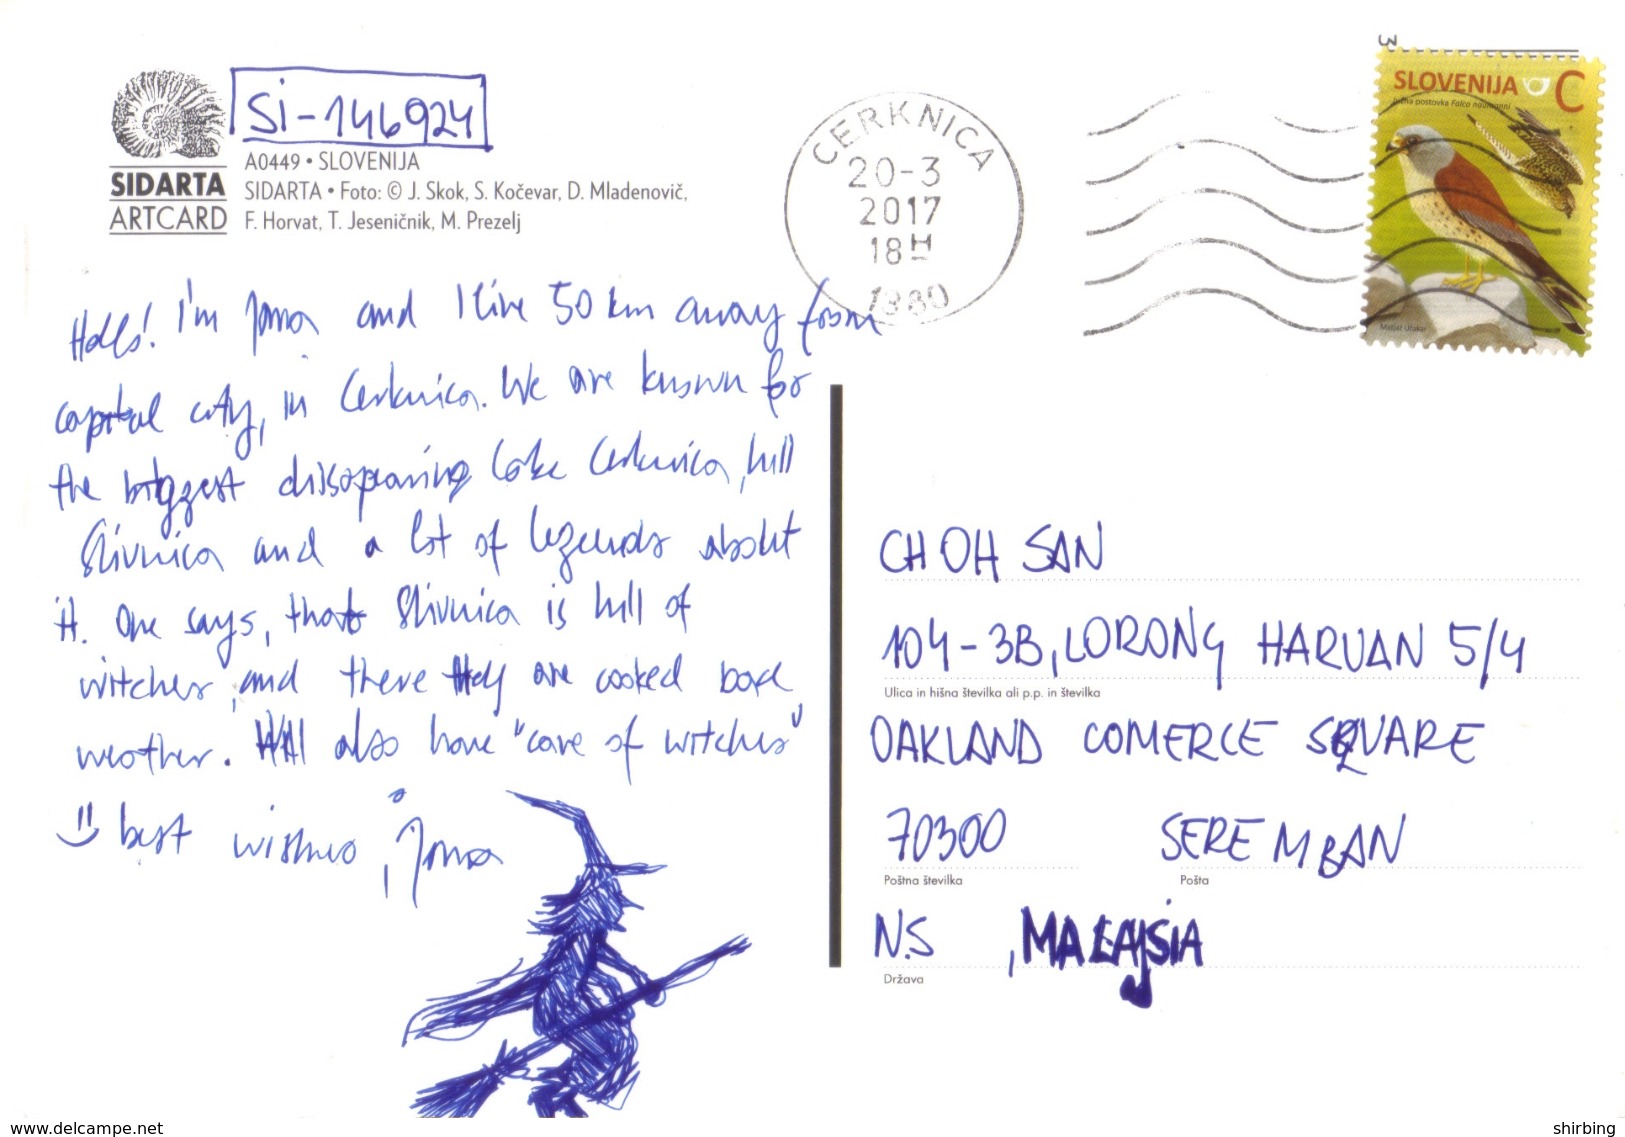 SI-146924
SIDARTA
ARTCARD
A0449 • SLOVENIJA
SIDARTA • Foto: © J. Skok, S. Kočevar, D. Mladenovič,
F. Horvat, T. Jeseničnik, M. Prezelj
CERKNICA
20-3
2017
18H
1380
3
SLOVENIJA C
južna postovka Falco naumanni
Matjaž Učakar
Hello! I'm Jana and I live 50 km away from
capital city, in Cerknica. We are known for
the biggest dissapearing lake Cerknica, hill
Slivnica and a lot of legends about
it. One says, that Slivnica is hill of
witches, and there they are cooked bad
weather. We also have "cave of witches"
best wishes, Jana
CHOH SAN
104-3B, LORONG HARUAN 5/4
Ulica in hišna številka ali p.p. in številka
OAKLAND COMERCE SQUARE
70300 SEREMBAN
Poštna številka Pošta
N.S , MALAJSIA
Država
www.delcampe.net
shirbing